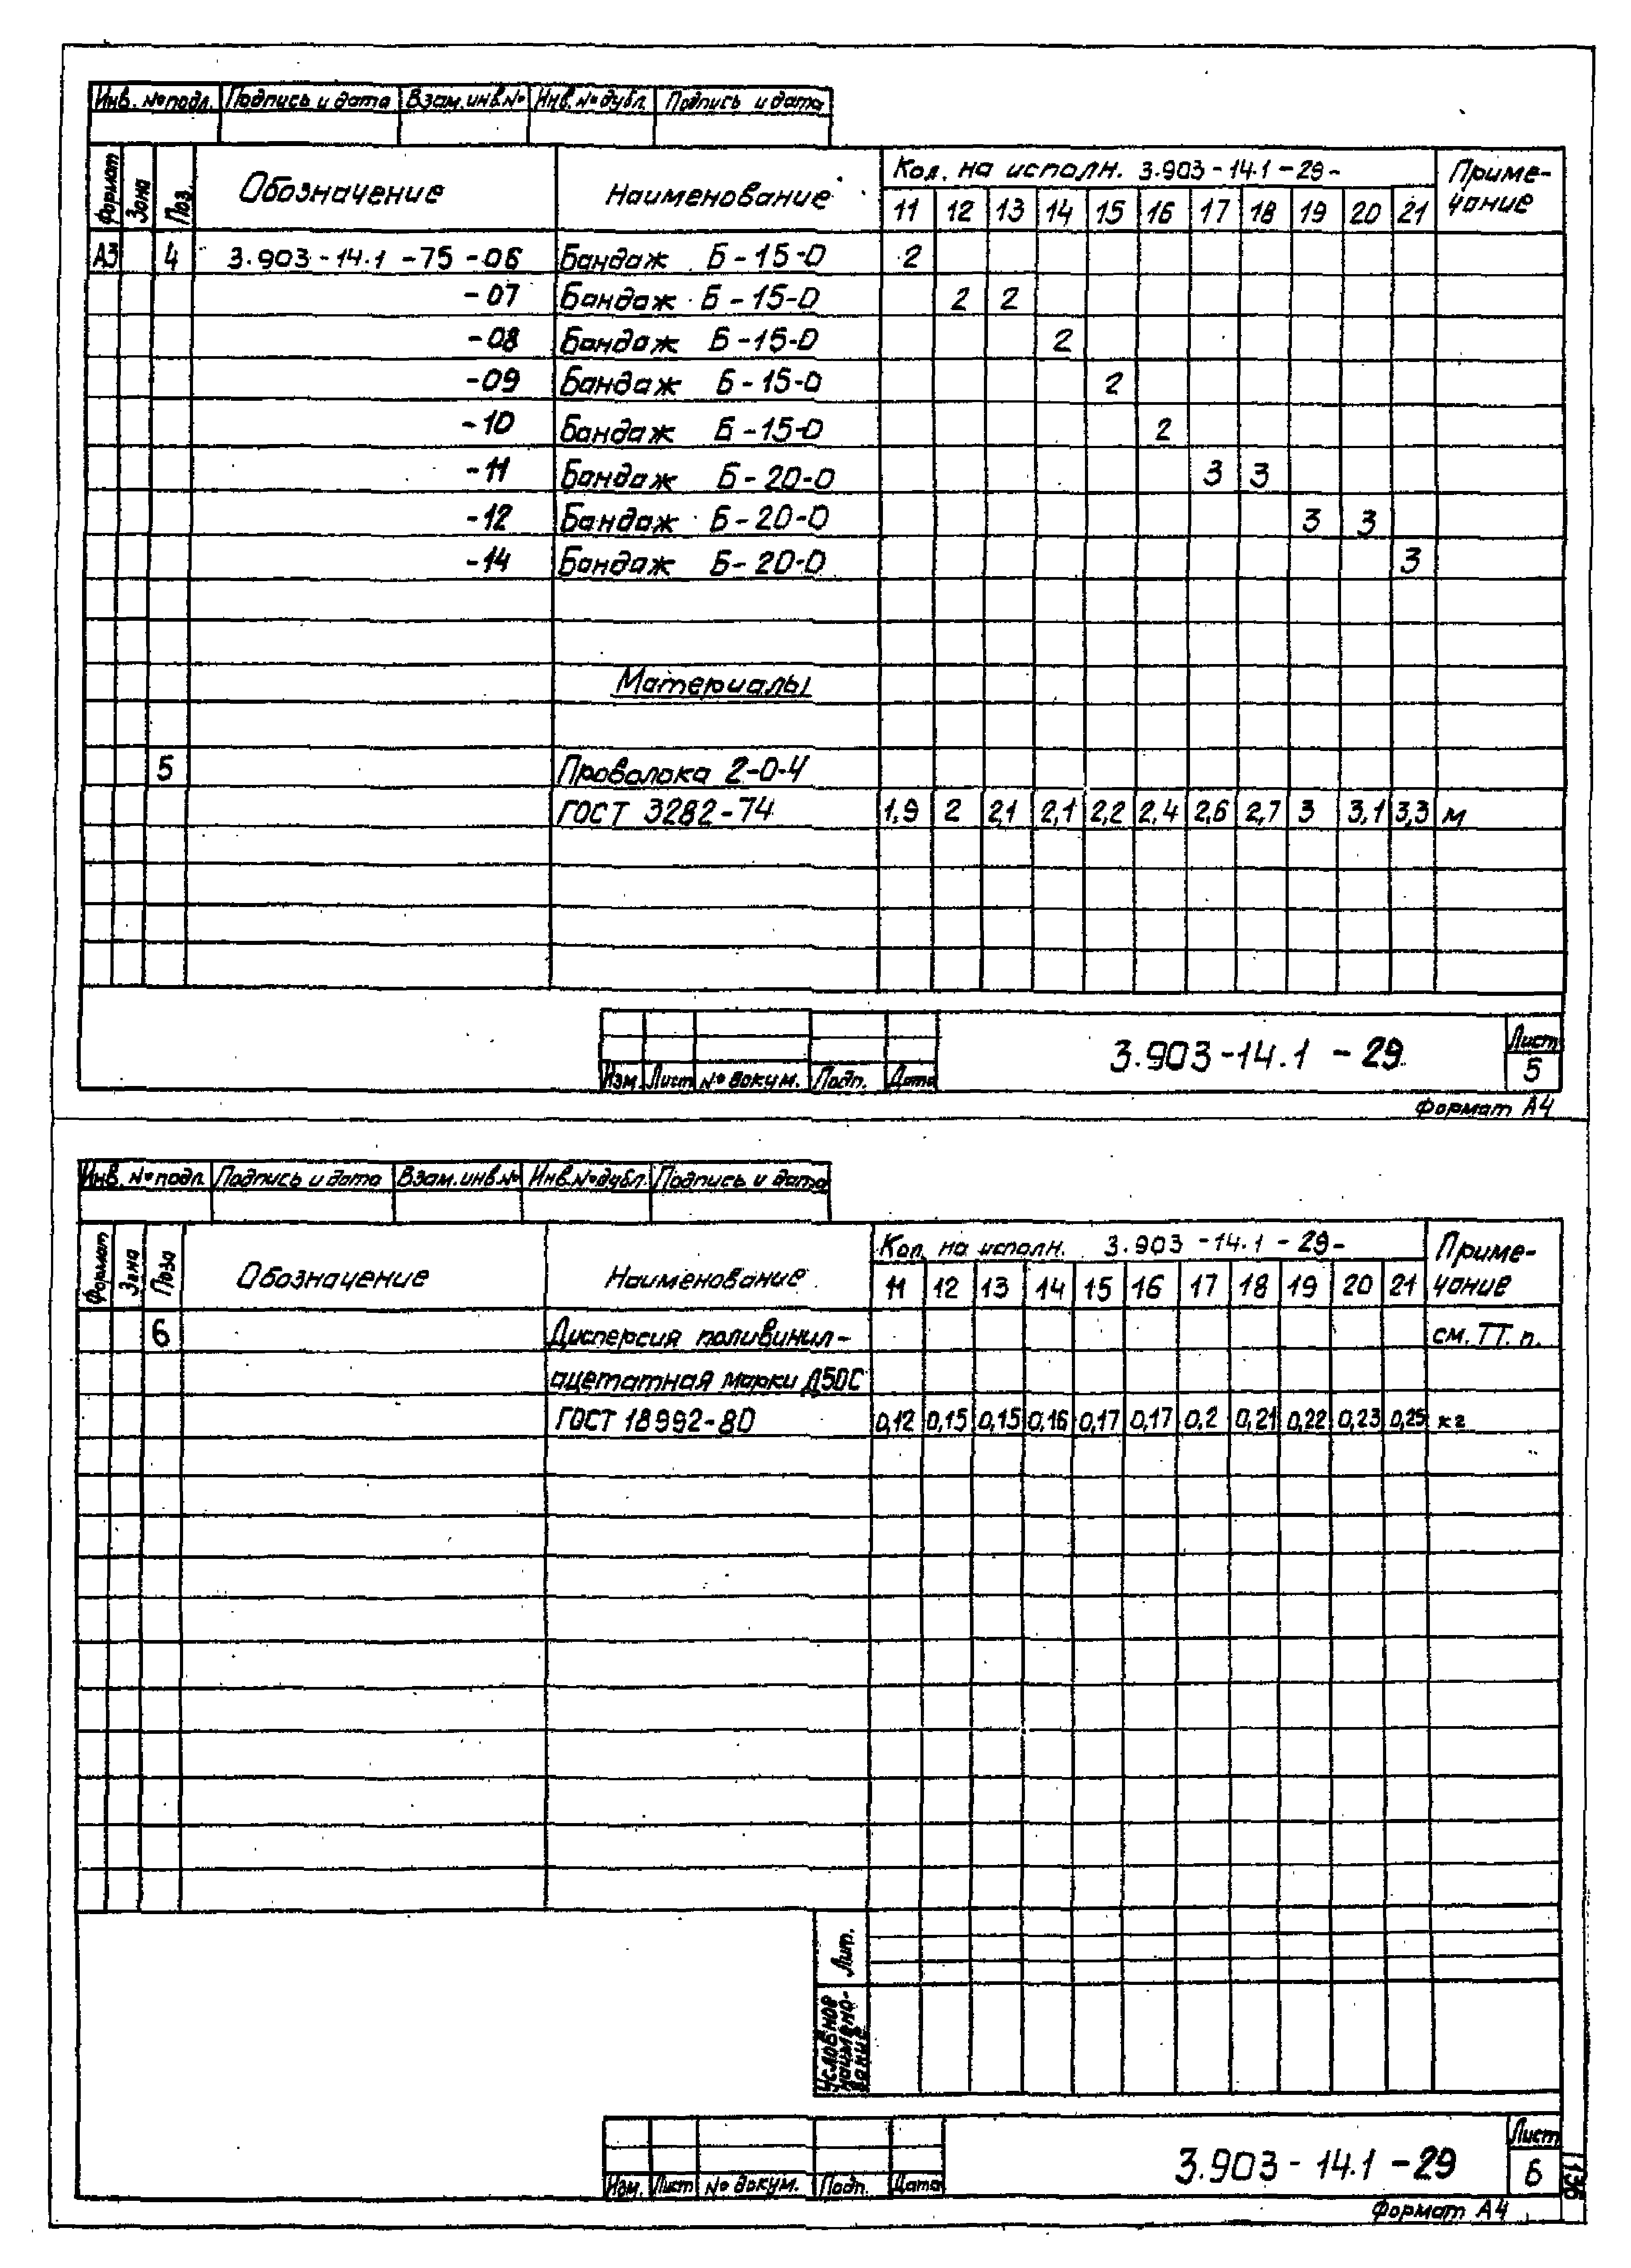 Инв. № подл. Подпись и дата Взам. инв. № Инв. № дубл. Подпись и дата
Формат Зона Поз. Обозначение Наименование Кол. на исполн. 3.903-14.1-29- Приме-
чание
11 12 13 14 15 16 17 18 19 20 21
А3 4 3.903-14.1-75-06 Бандаж Б-15-0 2
-07 Бандаж Б-15-0 2 2
-08 Бандаж Б-15-0 2
-09 Бандаж Б-15-0 2
-10 Бандаж Б-15-0 2
-11 Бандаж Б-20-0 3 3
-12 Бандаж Б-20-0 3 3
-14 Бандаж Б-20-0 3
Материалы
5 Проволока 2-0-4
ГОСТ 3282-74 1,9 2 2,1 2,1 2,2 2,4 2,6 2,7 3 3,1 3,3 м
Изм. Лист № докум. Подп. Дата
3.903-14.1-29
Лист
5
Формат А4
Инв. № подл. Подпись и дата Взам. инв. № Инв. № дубл. Подпись и дата
Формат Зона Поз. Обозначение Наименование Кол. на исполн. 3.903-14.1-29- Приме-
чание
11 12 13 14 15 16 17 18 19 20 21
6 Дисперсия поливинил- см. ТТ. п.
ацетатная марки Д50С
ГОСТ 18992-80 0,12 0,15 0,15 0,16 0,17 0,17 0,2 0,21 0,22 0,23 0,25 кг
Лит.
Условное
наимено-
вание
Изм. Лист № докум. Подп. Дата
3.903-14.1-29
Лист
6
Формат А4